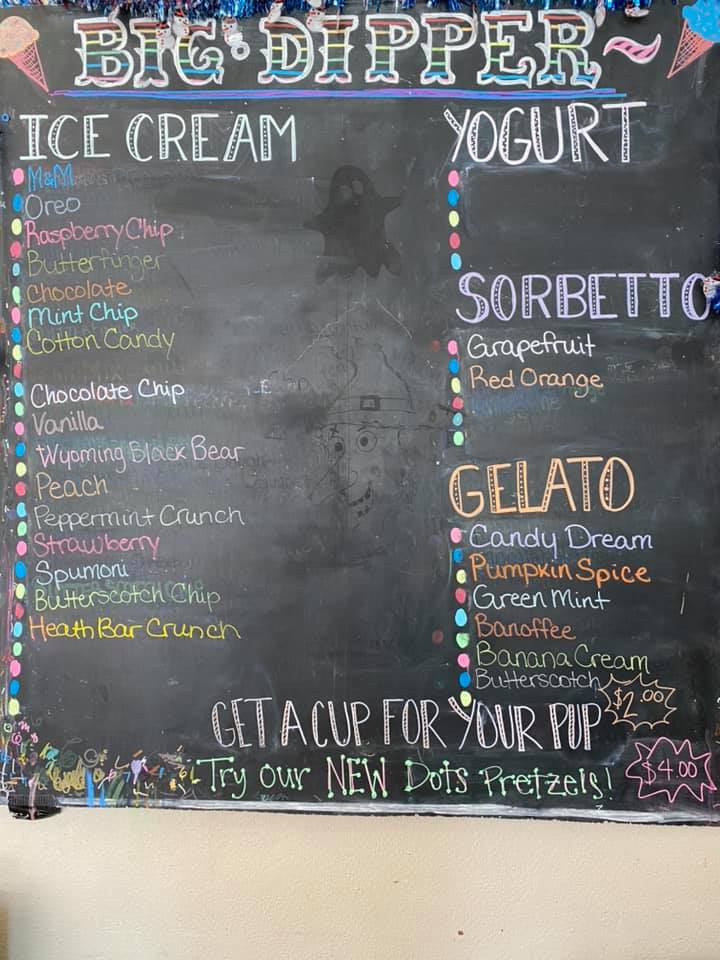 BIG DIPPER~
ICE CREAM
M&M
Oreo
Raspberry Chip
Butterfinger
Chocolate
Mint Chip
Cotton Candy
Chocolate Chip
Vanilla
Wyoming Black Bear
Peach
Peppermint Crunch
Strawberry
Spumoni
Butterscotch Chip
Heath Bar Crunch
YOGURT
SORBETTO
Grapefruit
Red Orange
GELATO
Candy Dream
Pumpkin Spice
Green Mint
Banoffee
Banana Cream
Butterscotch
GET A CUP FOR YOUR PUP $2.00
Try our NEW Dots Pretzels! $4.00